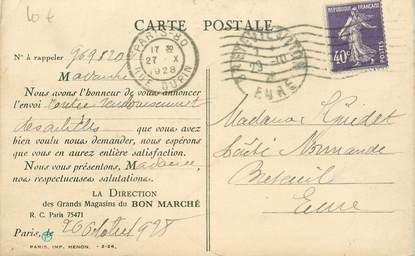 10 €
CARTE POSTALE
N° à rappeler 969820
PARIS-80
17
27 X
1928
R. DUPIN
29 -10
EURE
RÉPUBLIQUE FRANÇAISE
40c
POSTES
Madame
Nous avons l'honneur de vous annoncer
l'envoi contre remboursement
des articles que vous avez
bien voulu nous demander, nous espérons
que vous en aurez entière satisfaction.
Nous vous présentons, Madame,
nos respectueuses salutations.
LA DIRECTION
des Grands Magasins du BON MARCHÉ
R. C. Paris 75471
Paris, de 26 Octobre 1928
PARIS, IMP. HENON. - 2-28.
Madame
Normande
Breteuil
Eure